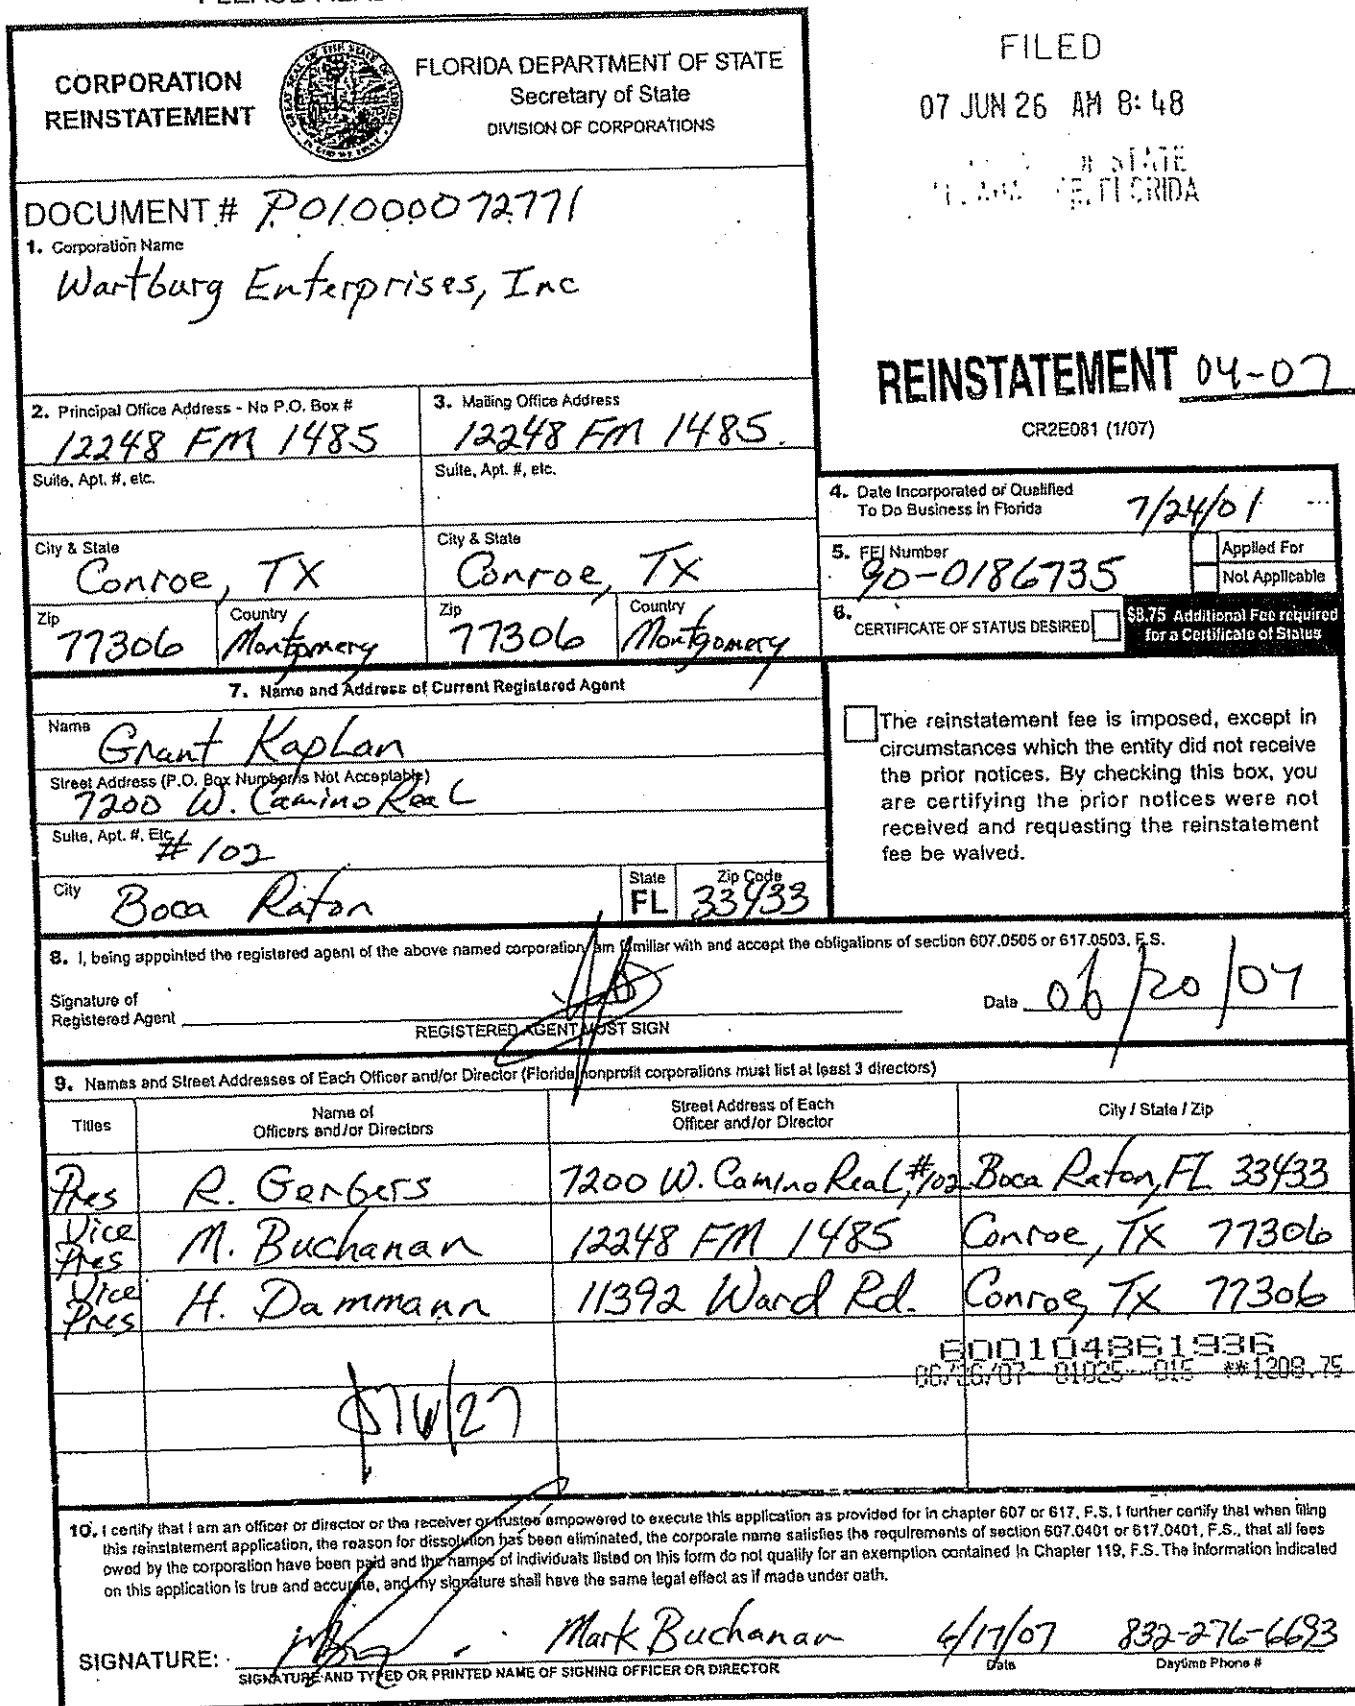 CORPORATION
REINSTATEMENT
FLORIDA DEPARTMENT OF STATE
Secretary of State
DIVISION OF CORPORATIONS
FILED
07 JUN 26 AM 8:48
STATE
FLORIDA
DOCUMENT # P01000072771
1. Corporation Name
Wartburg Enterprises, Inc
REINSTATEMENT 04-07
CR2E081 (1/07)
2. Principal Office Address - No P.O. Box #
12248 FM 1485
3. Mailing Office Address
12248 FM 1485.
Suite, Apt. #, etc.
Suite, Apt. #, etc.
City & State
Conroe, TX
City & State
Conroe, TX
Zip
77306
Country
Montgomery
Zip
77306
Country
Montgomery
4. Date Incorporated or Qualified
To Do Business in Florida
7/24/01
5. FEI Number
90-0186735
Applied For
Not Applicable
6. CERTIFICATE OF STATUS DESIRED
$8.75 Additional Fee required
for a Certificate of Status
7. Name and Address of Current Registered Agent
Name
Grant Kaplan
Street Address (P.O. Box Number is Not Acceptable)
7200 W. Camino Real
Suite, Apt. #, Etc.
#102
City
Boca Raton
State
FL
Zip Code
33433
The reinstatement fee is imposed, except in
circumstances which the entity did not receive
the prior notices. By checking this box, you
are certifying the prior notices were not
received and requesting the reinstatement
fee be waived.
8. I, being appointed the registered agent of the above named corporation, am familiar with and accept the obligations of section 607.0505 or 617.0503, F.S.
Signature of
Registered Agent
REGISTERED AGENT MUST SIGN
Date 06/20/07
9. Names and Street Addresses of Each Officer and/or Director (Florida nonprofit corporations must list at least 3 directors)
Titles
Name of
Officers and/or Directors
Street Address of Each
Officer and/or Director
City / State / Zip
Pres R. Gerbers 7200 W. Camino Real, #102 Boca Raton, FL 33433
Vice
Pres M. Buchanan 12248 FM 1485 Conroe, TX 77306
Vice
Pres H. Dammann 11392 Ward Rd. Conroe, TX 77306
600104861936
06/26/07--01025--015 **1208.75
10. I certify that I am an officer or director or the receiver or trustee empowered to execute this application as provided for in chapter 607 or 617, F.S. I further certify that when filing
this reinstatement application, the reason for dissolution has been eliminated, the corporate name satisfies the requirements of section 607.0401 or 617.0401, F.S., that all fees
owed by the corporation have been paid and the names of individuals listed on this form do not qualify for an exemption contained in Chapter 119, F.S. The information indicated
on this application is true and accurate, and my signature shall have the same legal effect as if made under oath.
SIGNATURE:
Mark Buchanan 6/17/07 832-276-6693
SIGNATURE AND TYPED OR PRINTED NAME OF SIGNING OFFICER OR DIRECTOR
Date
Daytime Phone #